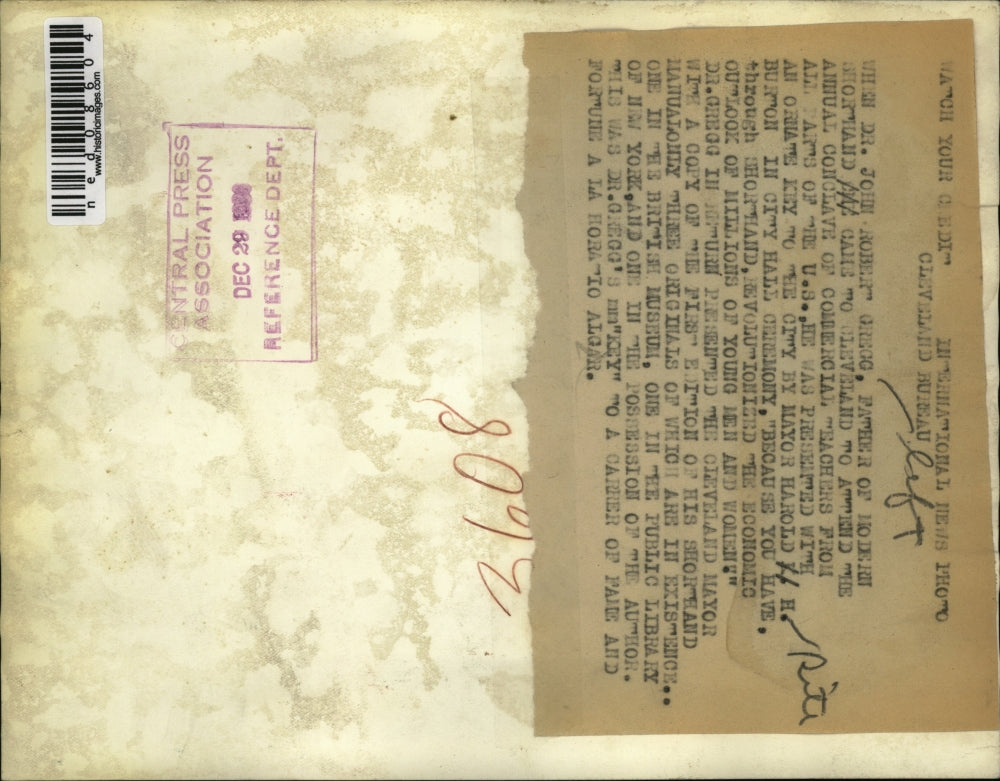 WATCH YOUR CREDIT INTERNATIONAL NEWS PHOTO
CLEVELAND BUREAU
left
WHEN DR. JOHN ROBERT GREGG, FATHER OF MODERN
SHORTHAND CAME TO CLEVELAND TO ATTEND THE
ANNUAL CONCLAVE OF COMMERCIAL TEACHERS FROM
ALL PARTS OF THE U.S., HE WAS PRESENTED WITH
AN ORNATE KEY TO THE CITY BY MAYOR HAROLD H.
BURTON IN CITY HALL CEREMONY, "BECAUSE YOU HAVE,
through SHORTHAND, REVOLUTIONIZED THE ECONOMIC
OUTLOOK OF MILLIONS OF YOUNG MEN AND WOMEN!"
DR.GREGG IN RETURN PRESENTED THE CLEVELAND MAYOR
WITH A COPY OF THE FIRST EDITION OF HIS SHORTHAND
MANUAL,ONLY THREE ORIGINALS OF WHICH ARE IN EXISTENCE..
ONE IN THE BRITISH MUSEUM, ONE IN THE PUBLIC LIBRARY
OF NEW YORK,AND ONE IN THE POSSESSION OF THE AUTHOR.
THIS WAS DR.GREGG'S "KEY" TO A CAREER OF FAME AND
FORTUNE A LA HORATIO ALGAR.
3608
CENTRAL PRESS
ASSOCIATION
DEC 29
REFERENCE DEPT.
www.historicimages.com
ned08604